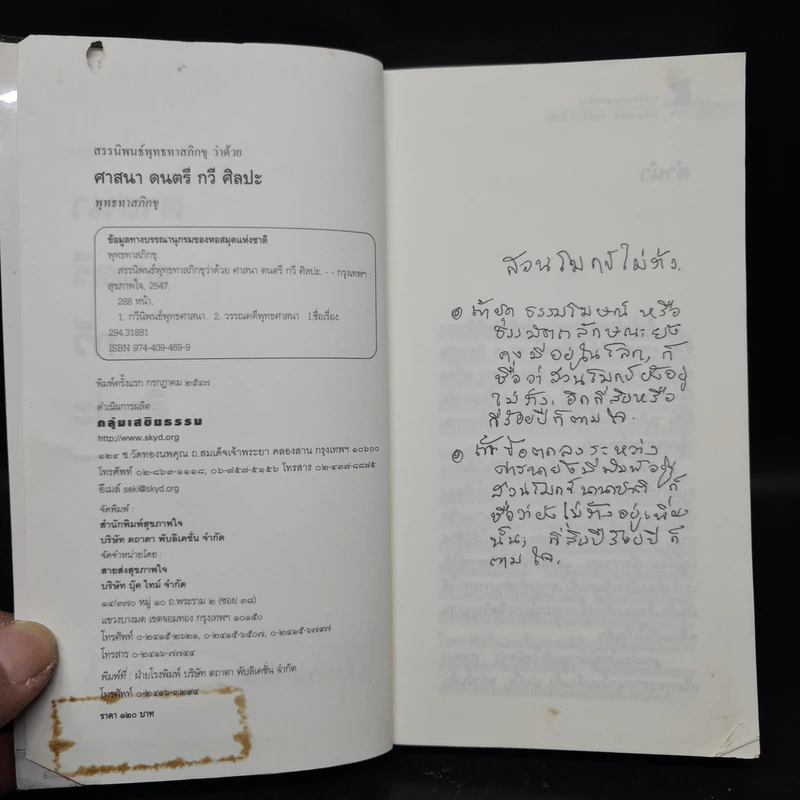 สรรนิพนธ์พุทธทาสภิกขุ ว่าด้วย
ศาสนา ดนตรี กวี ศิลปะ
พุทธทาสภิกขุ
ข้อมูลทางบรรณานุกรมของหอสมุดแห่งชาติ
พุทธทาสภิกขุ.
สรรนิพนธ์พุทธทาสภิกขุว่าด้วย ศาสนา ดนตรี กวี ศิลปะ. - - กรุงเทพฯ :
สุขภาพใจ, 2547.
288 หน้า.
1. กวีนิพนธ์พุทธศาสนา. 2. วรรณคดีพุทธศาสนา I.ชื่อเรื่อง.
294.31881
ISBN 974-409-469-9
พิมพ์ครั้งแรก กรกฎาคม ๒๕๔๗
ดำเนินการผลิต :
กลุ่มเสขิยธรรม
http://www.skyd.org
๑๒๔ ซ.วัดทองนพคุณ ถ.สมเด็จเจ้าพระยา คลองสาน กรุงเทพฯ ๑๐๖๐๐
โทรศัพท์ ๐-๒๘๖๓-๑๑๑๘, ๐-๖๗๕๗-๕๑๕๖ โทรสาร ๐-๒๔๓๗-๘๘๗๕
อีเมล์ seki@skyd.org
จัดพิมพ์ :
สำนักพิมพ์สุขภาพใจ
บริษัท ตถาตา พับลิเคชั่น จำกัด
จัดจำหน่ายโดย :
สายส่งสุขภาพใจ
บริษัท บุ๊ค ไทม์ จำกัด
๑๔/๓๗๐ หมู่ ๑๐ ถ.พระราม ๒ (ซอย ๓๘)
แขวงบางมด เขตจอมทอง กรุงเทพฯ ๑๐๑๕๐
โทรศัพท์ ๐-๒๔๑๕-๒๖๒๑, ๐-๒๔๑๕-๖๕๐๗, ๐-๒๔๑๕-๖๗๙๗
โทรสาร ๐-๒๔๑๖-๗๗๔๔
พิมพ์ที่ : ฝ่ายโรงพิมพ์ บริษัท ตถาตา พับลิเคชั่น จำกัด
โทรศัพท์ ๐-๒๔๑๖-๓๒๙๔
ราคา ๑๒๐ บาท
สวนโมกข์ไม่ร้าง.
ธรรมโฆษณ์ หรือ
ลักษณะ ยัง
คงมีอยู่ในโลก, ก็
ชื่อว่า สวนโมกข์ยังอยู่
ไม่ร้าง, อีกสี่สิบหรือ
สี่ร้อยปีก็ตามใจ.
ข้อตกลงระหว่าง
อยู่
สวนโมกข์นานาชาติ ก็
ชื่อว่ายังไม่ร้างอยู่เพียง
นั้น, สี่สิบปีร้อยปีก็
ตามใจ.